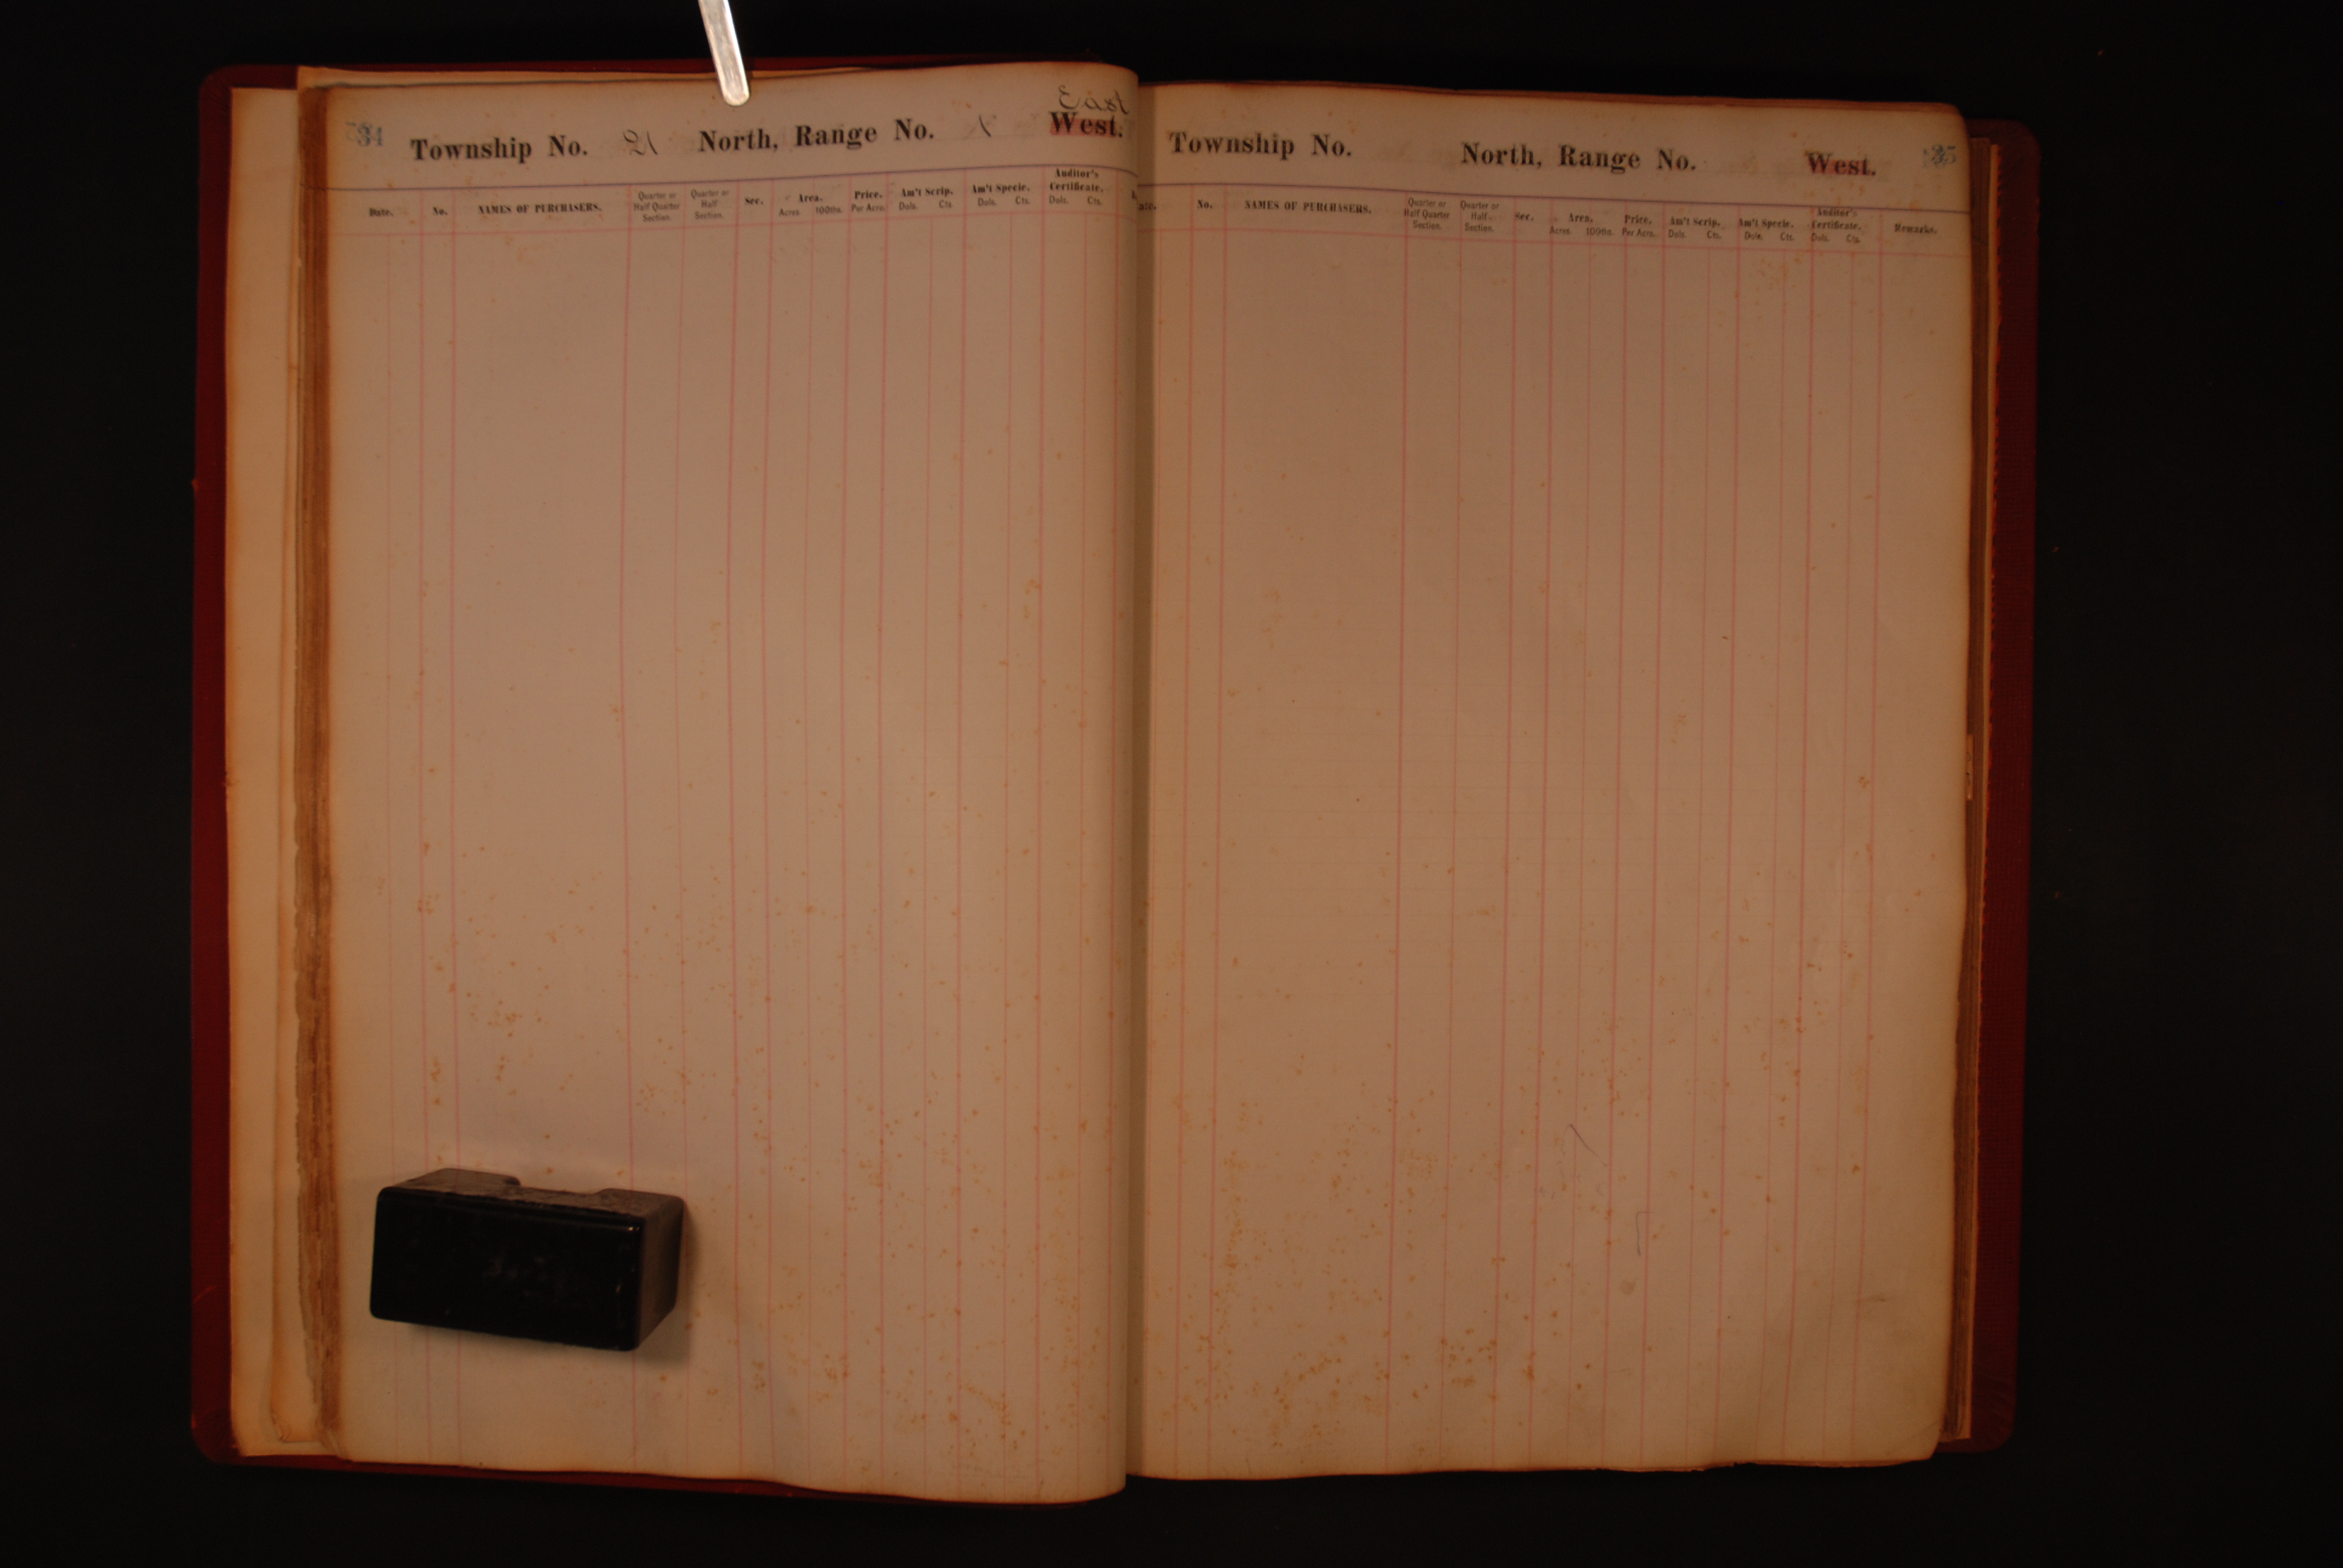 34
Township No. 21 North, Range No. East West.
Date. No. NAMES OF PURCHASERS. Quarter or Half Quarter Section. Quarter or Half Section. Sec. Area. Acres 100ths. Price. Per Acre. Am't Scrip. Dols. Cts. Am't Specie. Dols. Cts. Auditor's Certificate. Dols. Cts.
35
Township No. North, Range No. West.
ate. No. NAMES OF PURCHASERS. Quarter or Half Quarter Section. Quarter or Half Section. Sec. Area. Acres 100ths. Price. Per Acre. Am't Scrip. Dols. Cts. Am't Specie. Dols. Cts. Auditor's Certificate. Dols. Cts. Remarks.